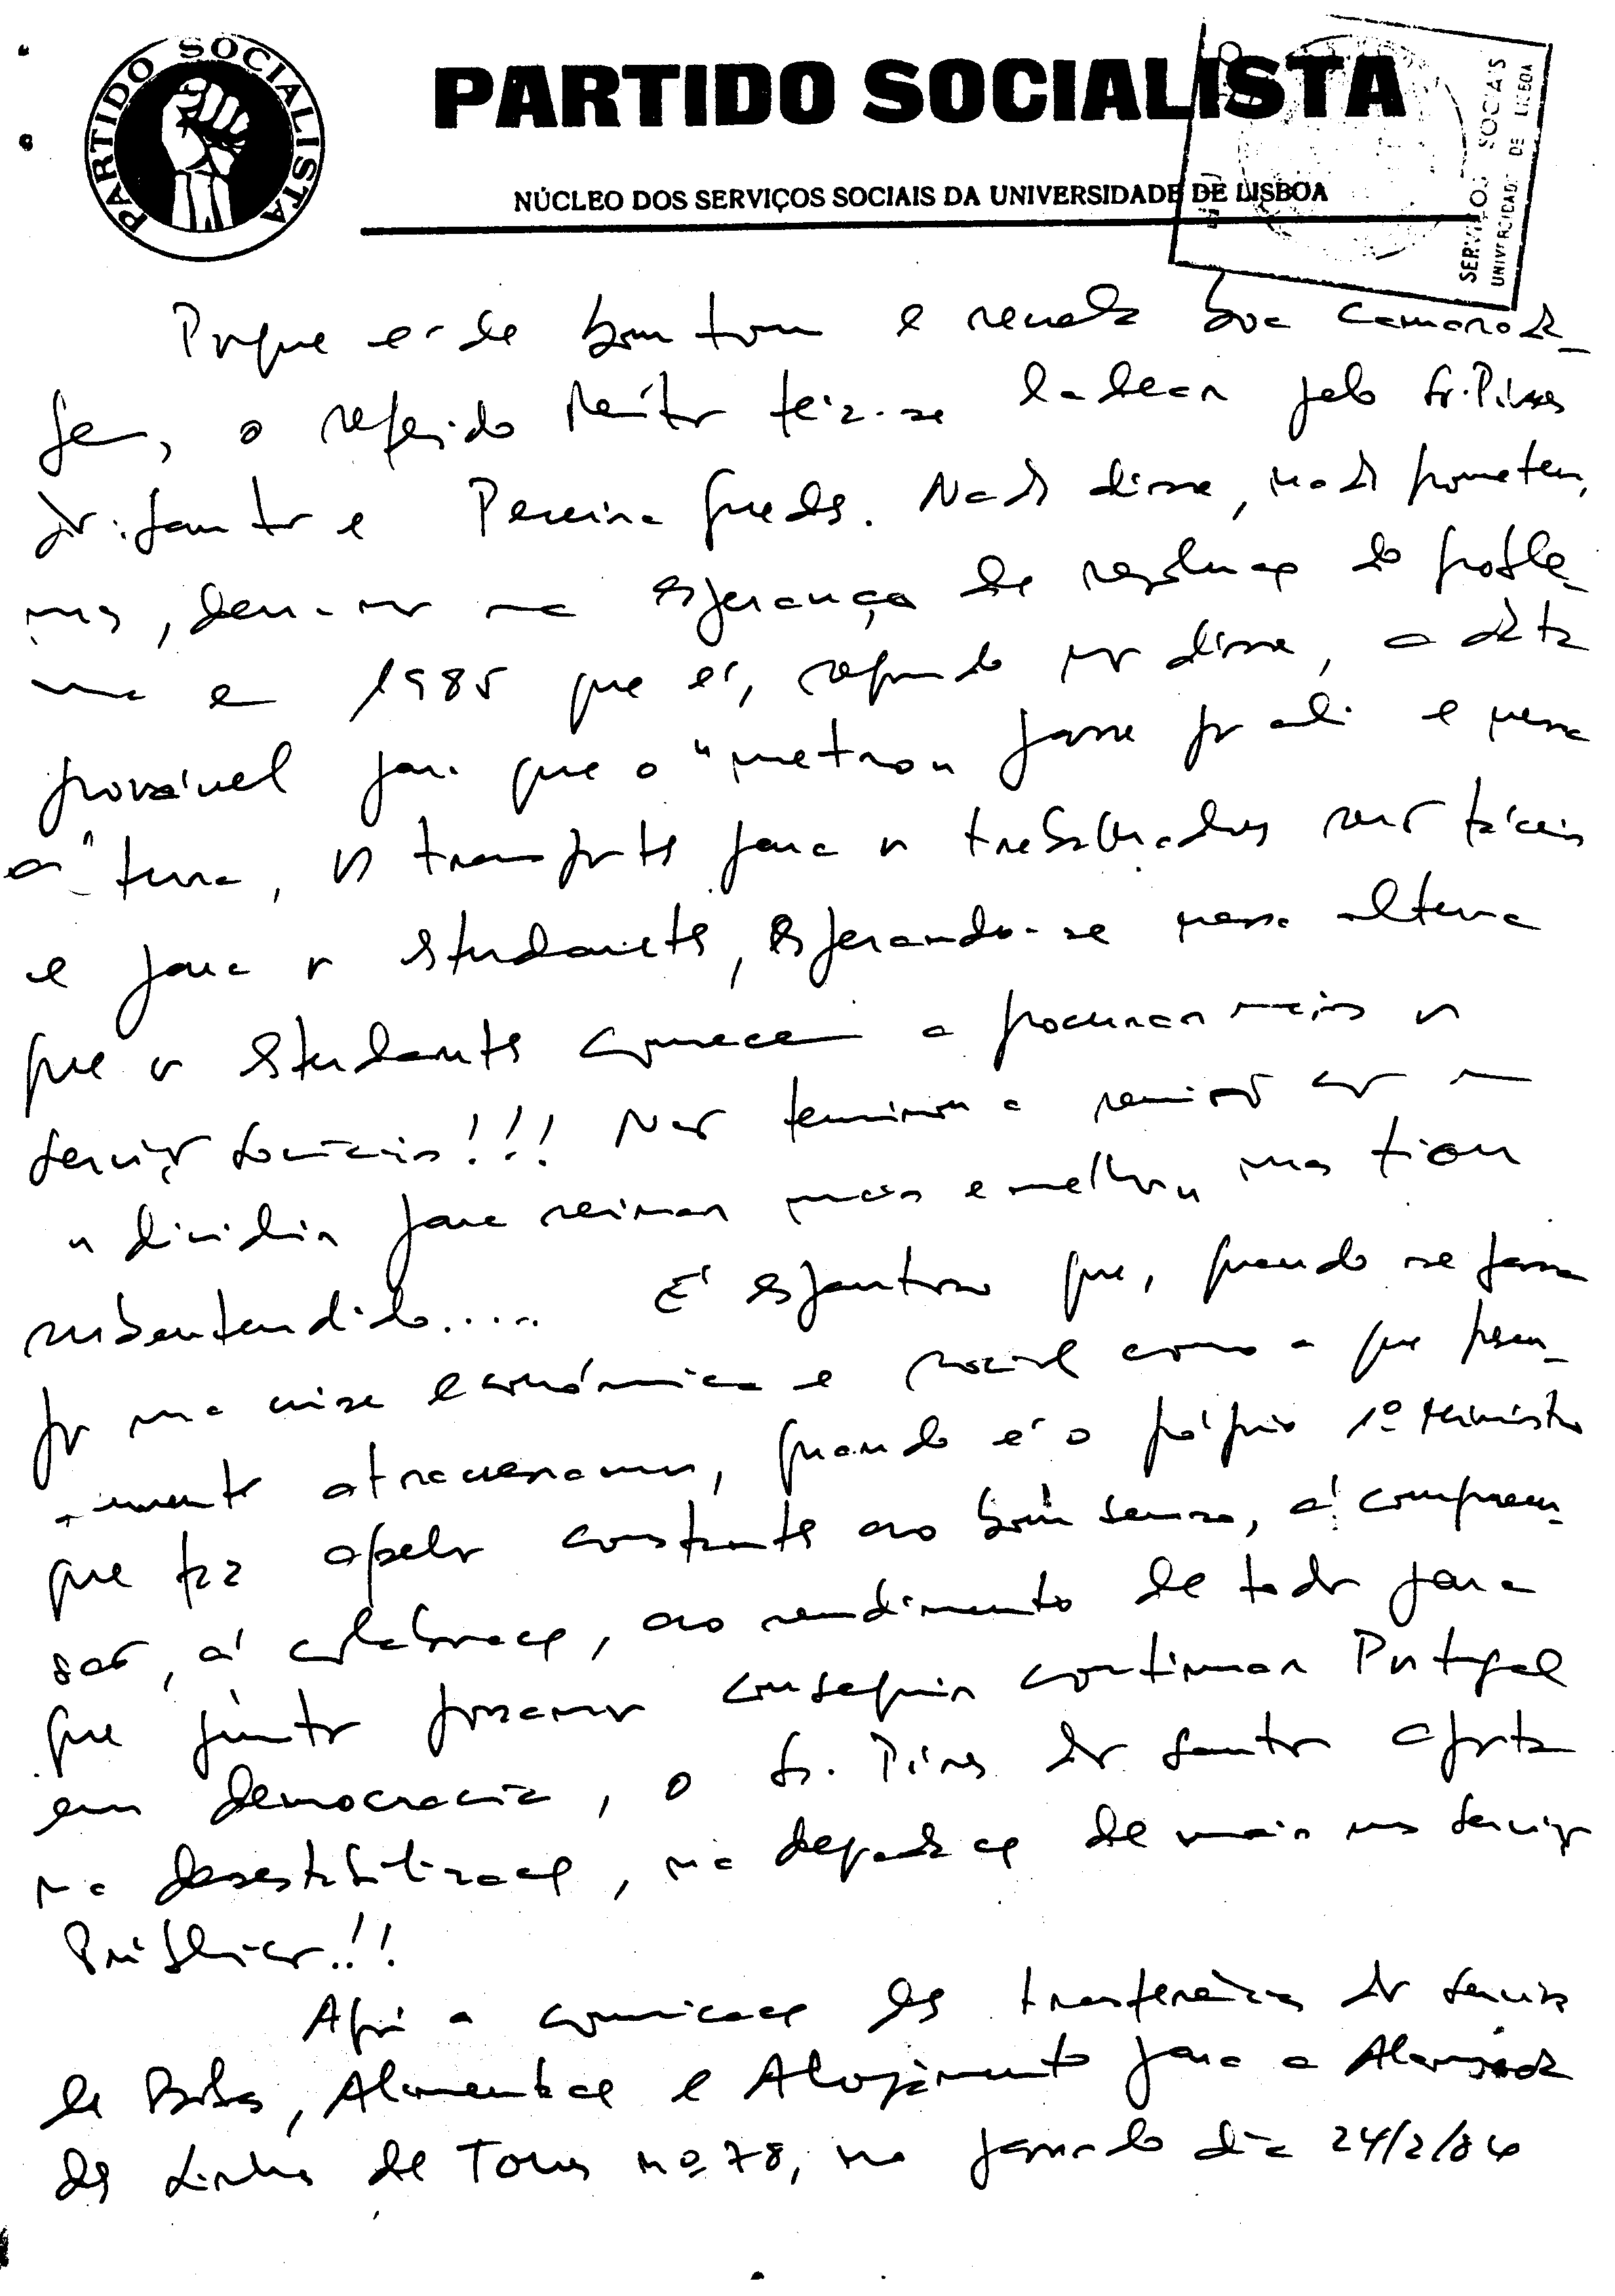 PARTIDO SOCIALISTA
PARTIDO SOCIALISTA
NÚCLEO DOS SERVIÇOS SOCIAIS DA UNIVERSIDADE DE LISBOA
SERVIÇOS SOCIAIS
UNIVERSIDADE DE LISBOA
Porque é de bom tom e revela boa camarada-
gem, o referido Reitor fez-se ladear pelo Sr. Pires
dos Santos e Pereira Guedes. Nada disse, nada prometeu,
mas, deu-nos na esperança de resolução do proble-
ma em 1985 que é, segundo nos disse, a data
provável para que o "metro" passe por ali e nessa
altura, os transportes para os trabalhadores são fáceis
e para os estudantes, esperando-se nessa altura
que os estudantes comecem a procurar mais os
Serviços Sociais!!! Não terminou a reunião com um
"dividir para reinar mais e melhor" mas ficou
subentendido.....  É espantoso que, quando se passa
por uma crise económica e social como a que presen-
temente atravessamos, quando é o próprio 1º Ministro
que faz apelos constantes ao bom senso, à compreen-
são, à colaboração, ao rendimento de todos para
que juntos possamos conseguir continuar Portugal
em democracia, o Sr. Pires dos Santos aposta
na desestabilização, na degradação de mais uns Serviços
Públicos..!!
Após a comunicação das transferências dos Serviços
de Bolsas, Alimentação e Alojamento para a Alameda
das Linhas de Torres nº 78, no passado dia 24/2/84